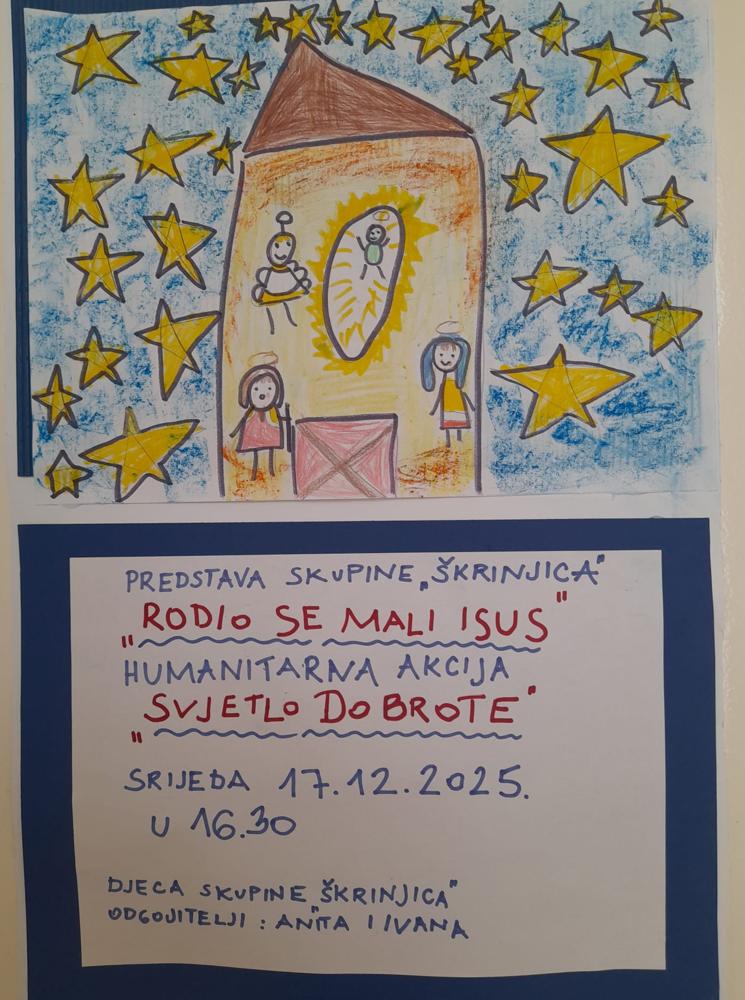 PREDSTAVA SKUPINE „ŠKRINJICA"
„RODIO SE MALI ISUS"
HUMANITARNA AKCIJA
„SVJETLO DOBROTE"
SRIJEDA 17.12.2025.
U 16.30
DJECA SKUPINE „ŠKRINJICA"
ODGOJITELJI : ANITA I IVANA